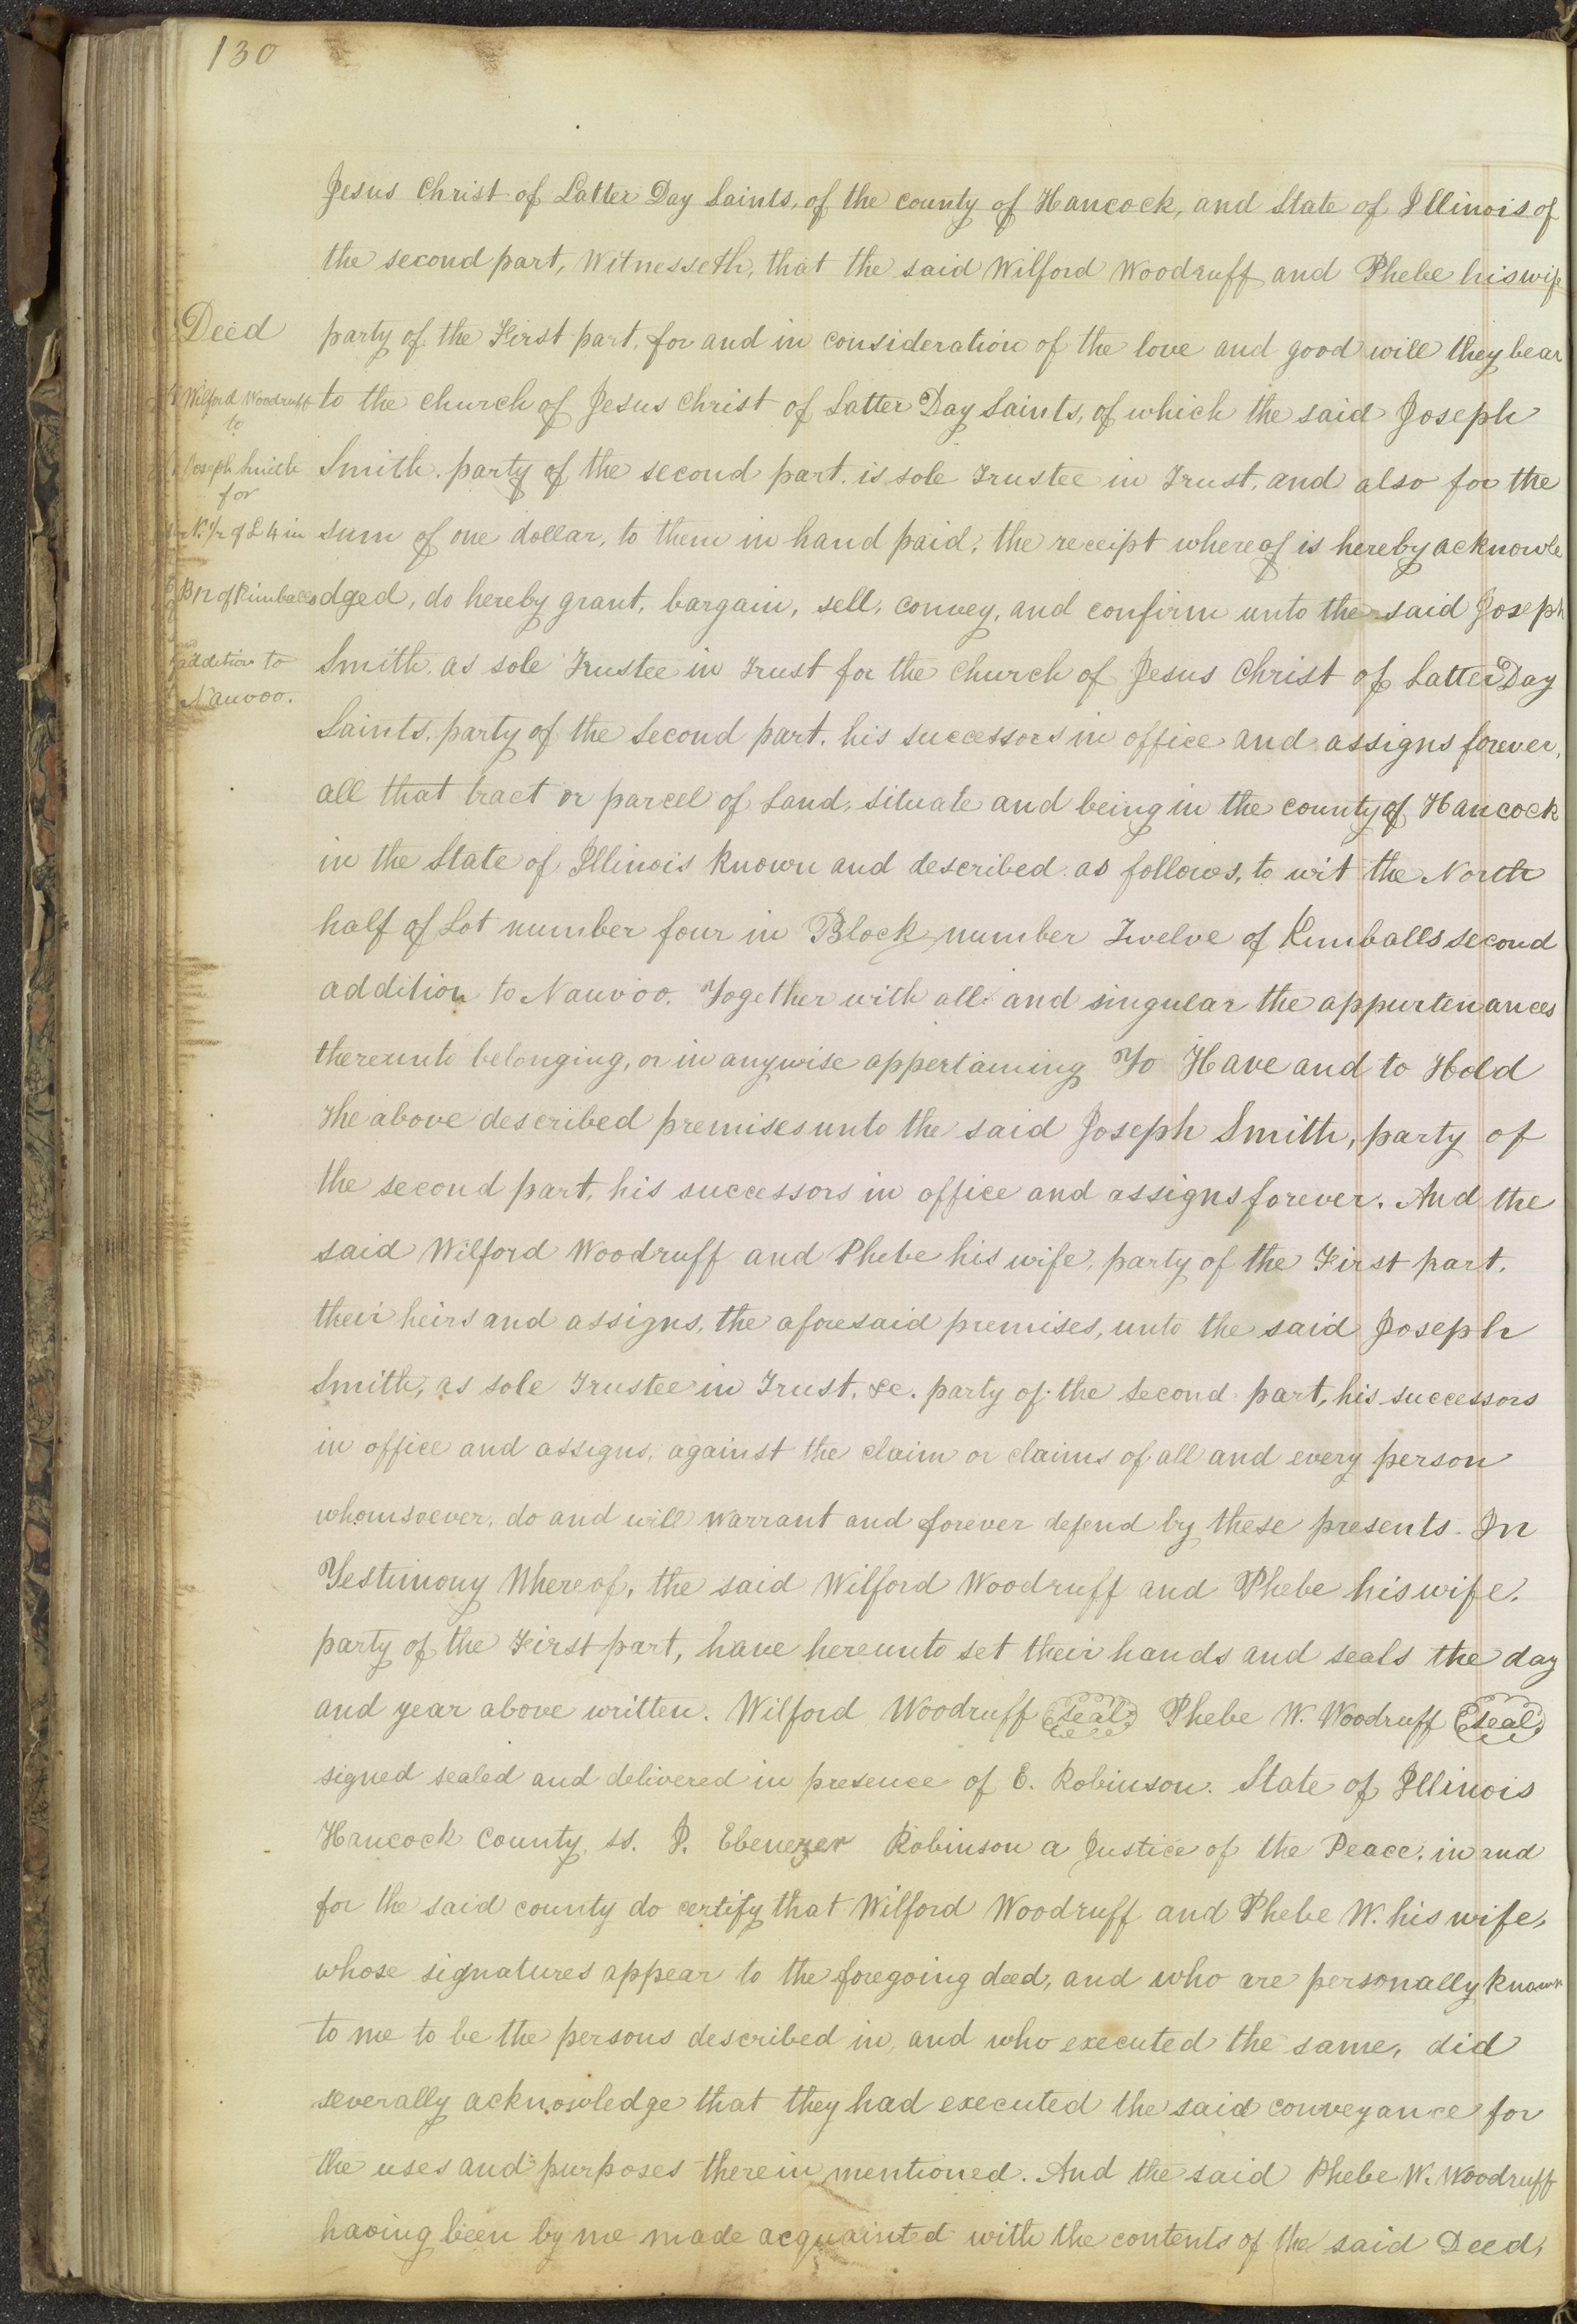 130
Jesus Christ of Latter Day Saints, of the county of Hancock, and State of Illinois of
the second part, Witnesseth, that the said Wilford Woodruff and Phebe his wife
Deed
party of the First part, for and in consideration of the love and good will they bear
Wilford Woodruff
to the church of Jesus Christ of Latter Day Saints, of which the said Joseph
to
Joseph Smith
Smith, party of the second part, is sole Trustee in Trust, and also for the
for
N. 1/2 of L 4 in
sum of one dollar, to them in hand paid, the receipt whereof is hereby acknowle
B 12 of Kimballs
dged, do hereby grant, bargain, sell, convey, and confirm unto the said Joseph
addition to
Smith, as sole Trustee in Trust for the Church of Jesus Christ of Latter Day
Nauvoo.
Saints, party of the Second part, his successors in office and assigns forever,
all that tract or parcel of Land, situate and being in the county of Hancock
in the State of Illinois known and described as follows, to wit the North
half of Lot number four in Block number Twelve of Kimballs second
addition to Nauvoo. Together with all and singular the appurtenances
thereunto belonging, or in anywise appertaining To Have and to Hold
the above described premises unto the said Joseph Smith, party of
the second part, his successors in office and assigns forever. And the
said Wilford Woodruff and Phebe his wife, party of the First part,
their heirs and assigns, the aforesaid premises, unto the said Joseph
Smith, as sole Trustee in Trust, &c. party of the Second part, his successors
in office and assigns, against the claim or claims of all and every person
whomsoever, do and will warrant and forever defend by these presents. In
Testimony Whereof, the said Wilford Woodruff and Phebe his wife,
party of the First part, have hereunto set their hands and seals the day
and year above written. Wilford Woodruff Seal Phebe W. Woodruff Seal
signed sealed and delivered in presence of E. Robinson. State of Illinois
Hancock County, ss. I, Ebenezer Robinson a Justice of the Peace, in and
for the said county do certify that Wilford Woodruff and Phebe W. his wife,
whose signatures appear to the foregoing deed, and who are personally known
to me to be the persons described in, and who executed the same, did
severally acknowledge that they had executed the said conveyance for
the uses and purposes therein mentioned. And the said Phebe W. Woodruff
having been by me made acquainted with the contents of the said Deed,